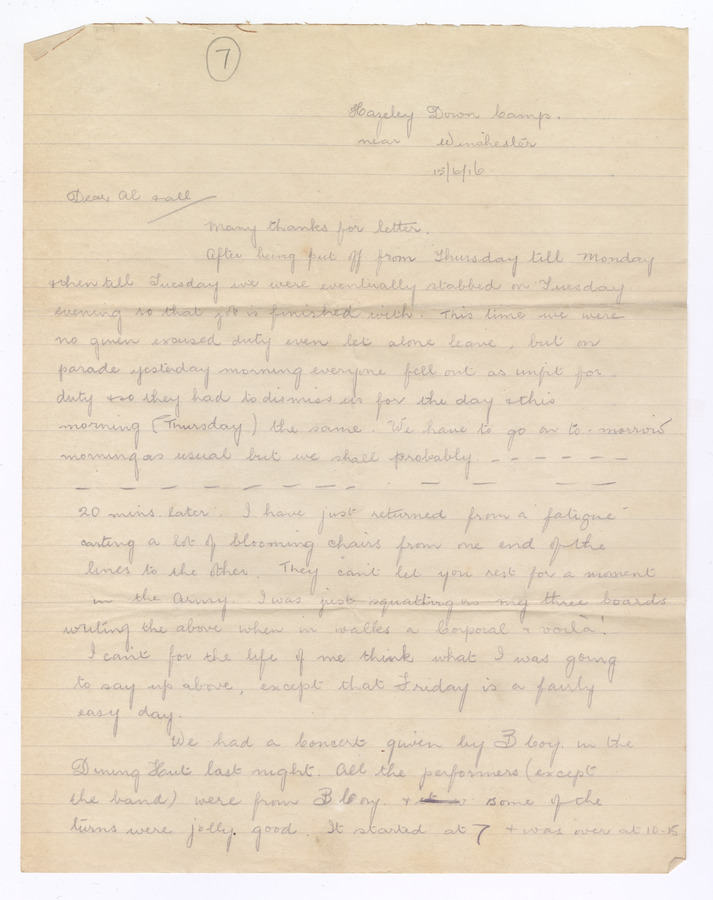 7
Hazeley Down Camp.
near Winchester
15/6/16
Dear Al & all
Many thanks for letter.
After being put off from Thursday till Monday
& then till Tuesday we were eventually stabbed on Tuesday
evening so that job is finished with. This time we were
no given excused duty even let alone leave, but on
parade yesterday morning everyone fell out as unfit for
duty & so they had to dismiss us for the day & this
morning (Thursday) the same. We have to go on to-morrow
morning as usual but we shall probably - - - - - -
- - - - - - - - - - - -
20 mins later. I have just returned from a 'fatigue'
carting a lot of blooming chairs from one end of the
lines to the other. They can't let you rest for a moment
in the Army. I was just squatting on my three boards
writing the above when in walks a Corporal & voilà!
I can't for the life of me think what I was going
to say up above, except that Friday is a fairly
easy day.
We had a Concert given by B Coy. in the
Dining Hut last night. All the performers (except
the band) were from B Coy. & some of the
turns were jolly good. It started at 7 & was over at 10-15